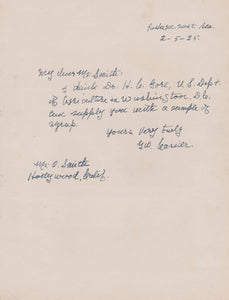 Tuskegee Inst. Ala.
2-5-25.
My dear Mr. Smith:
I think Dr. H. C. Gore, U.S. Dept.
of Agriculture in Washington, D.C.
can supply you with a sample of
syrup.
Yours Very truly
G.W. Carver.
Mr. O. Smith
Hollywood, Calif.